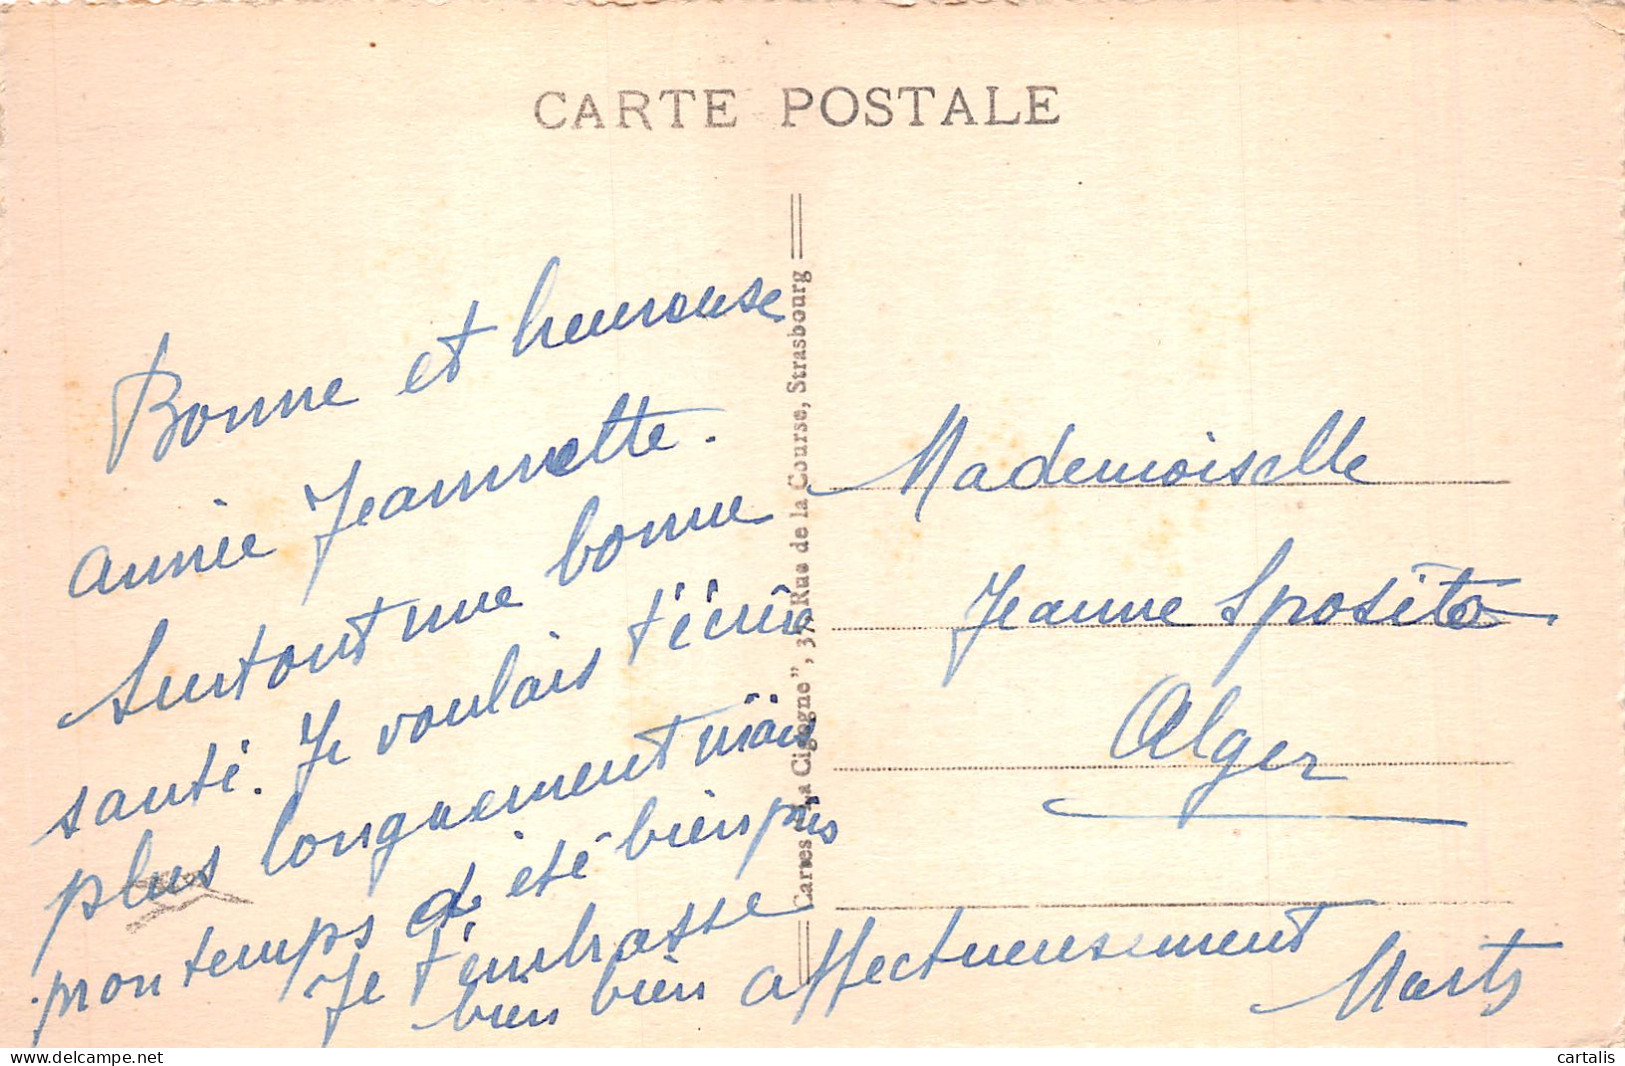 CARTE POSTALE
Bonne et heureuse
année Jeannette.
Surtout une bonne
santé. Je voulais t'écrire
plus longuement mais
mon temps a été bien pris
Je t'embrasse
bien bien affectueusement
Cartes "La Cigogne", 37 Rue de la Course, Strasbourg
Mademoiselle
Jeanne Sposito
Alger
cartalis